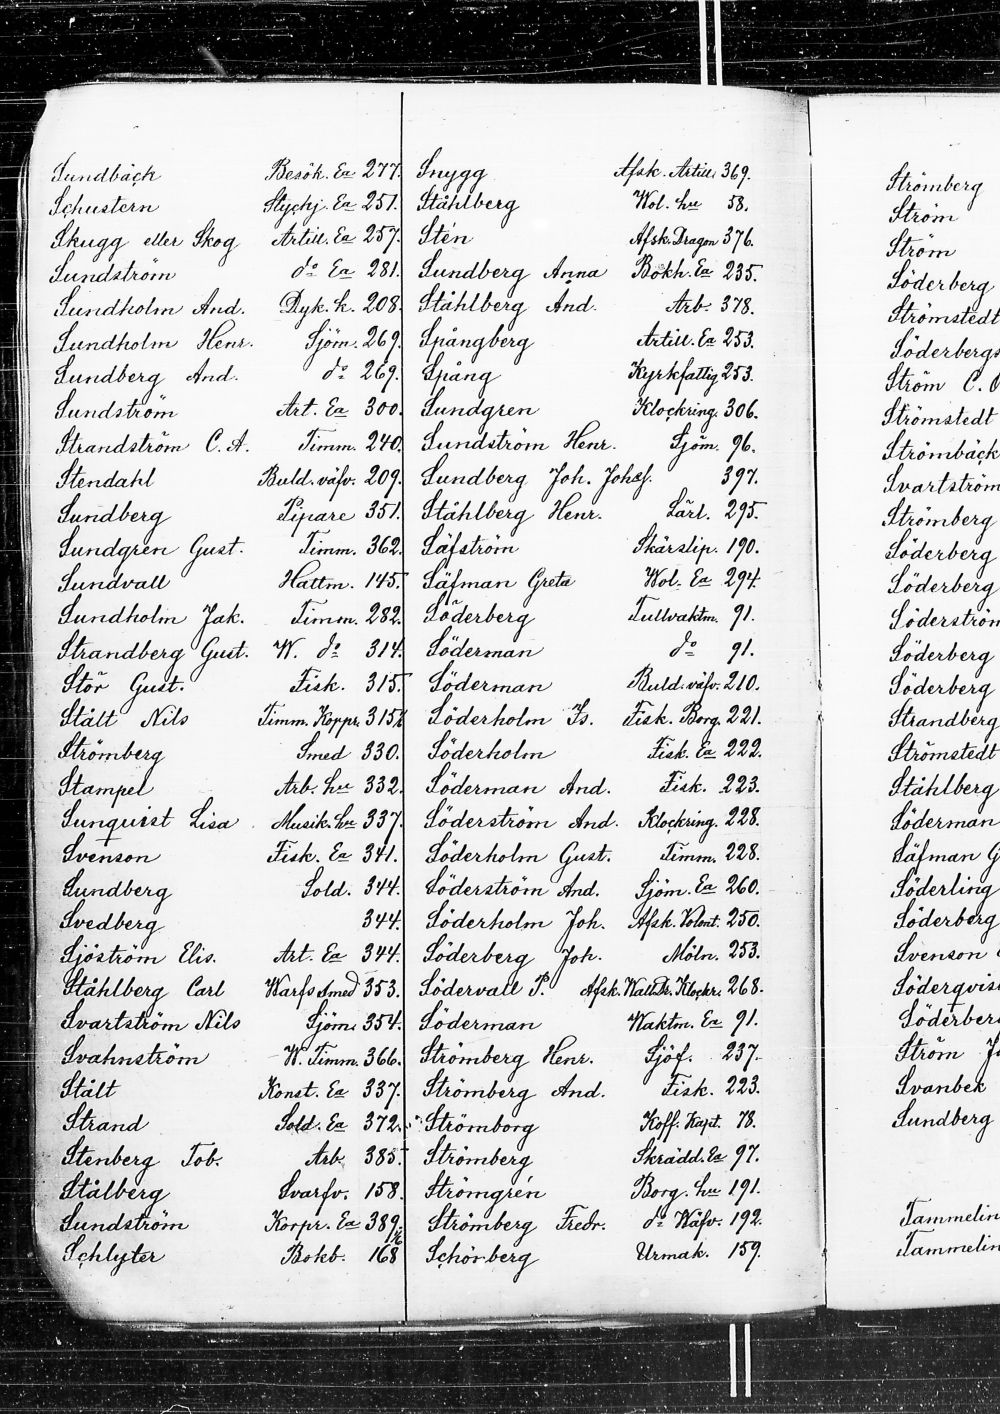 Sundbäck Besök. Ea 277.
Schustern Styckj. Ea 251.
Skugg eller Skog Artill. Ea 257.
Sundström do Ea 281.
Sundholm And. Dyk. k. 208.
Sundholm Henr. Sjöm. 269.
Sundberg And. do 269.
Sundström Art. Ea 300.
Strandström C. A. Timm. 240.
Stendahl Buld. väfv. 209.
Sundberg Pipare 351.
Sundgren Gust. Timm. 362.
Sundvall Hattm. 145.
Sundholm Jak. Timm. 282.
Strandberg Gust. W. do 314.
Stör Gust. Fisk. 315.
Stålt Nils Timm. Koppr. 315½
Strömberg Smed 330.
Stampel Arb. hu 332.
Sunquist Lisa Musik. hu 337.
Svenson Fisk. Ea 341.
Sundberg Sold. 344.
Svedberg 344.
Sjöström Elis. Art. Ea 344.
Ståhlberg Carl Warfs Smed 353.
Svartström Nils Sjöm. 354.
Svahnström W. Timm. 366.
Stålt Konst. Ea 337.
Strand Sold. Ea 372.
Stenberg Tob. Arb. 385.
Stålberg Svarfv. 158.
Sundström Korpr. Ea 389.
Schlyter Bokb. 168
Snygg Afsk. Artill. 369.
Ståhlberg Wol. hu 58.
Stén Afsk. Dragon 376.
Sundberg Anna Bokh. Ea 235.
Ståhlberg And. Arb. 378.
Spångberg Artill. Ea 253.
Spång Kyrkfattig 253.
Sundgren Klockring. 306.
Sundström Henr. Sjöm. 96.
Sundberg Joh. Johsf. 397.
Ståhlberg Henr. Lärl. 295.
Säfström Skärslip. 190.
Säfman Greta Wol. Ea 294.
Söderberg Tullvaktm. 91.
Söderman do 91.
Söderman Buld. väfv. 210.
Söderholm Is. Fisk. Borg. 221.
Söderholm Fisk. Ea 222.
Söderman And. Fisk. 223.
Söderström And. Klockring. 228.
Söderholm Gust. Timm. 228.
Söderström And. Sjöm. Ea 260.
Söderholm Joh. Afsk. Volont. 250.
Söderberg Joh. Möln. 253.
Södervall P. Afsk. Klockr. 268.
Söderman Waktm. Ea 91.
Strömberg Henr. Sjöf. 237.
Strömberg And. Fisk. 223.
Strömborg Koff. Kapt. 78.
Strömberg Skrädd. Ea 97.
Strömgrén Borg. hu 191.
Strömberg Fredr. do Wäfv. 192.
Schörberg Urmak. 159.
Strömberg
Ström
Ström
Söderberg
Strömstedt
Söderbergs
Ström C.
Strömstedt
Strömbäck
Svartström
Strömberg
Söderberg
Söderberg
Söderström
Söderberg
Söderberg
Strandberg
Strömstedt
Ståhlberg
Söderman
Säfman G
Söderling
Söderberg
Svenson
Söderqvis
Söderber
Ström J
Svanbek
Sundberg
Tammelin
Tammelin